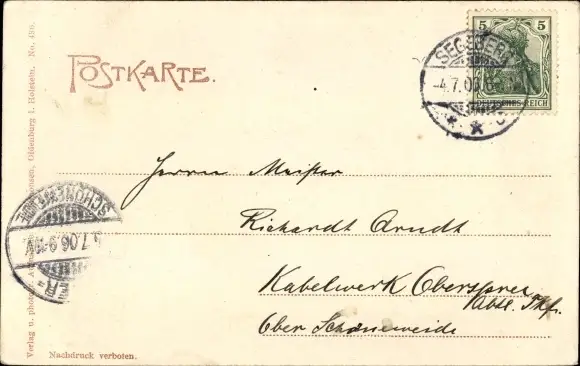 POSTKARTE.
5 5
DEUTSCHES REICH
SEGEBERG
-4.7.06.
Herrn Meister
Richardt Arndt
Kabelwerk Oberspree
Abtl. Tkf.
Ober Schöneweide
SCHÖNEWEIDE
5.7.06.9-
Verlag u. photogr.
Oldenburg i. Holstein. No. 480.
Nachdruck verboten.